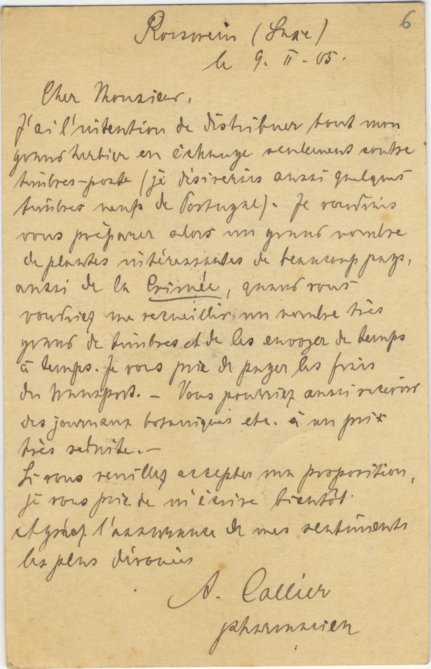 6
Rosswein (Saxe)
le 9. II - 05.
Cher Monsieur,
J'ai l'intention de distribuer tout mon
grand herbier en échange seulement contre
timbres-poste (je désirerais aussi quelques
timbres neufs de Portugal). Je voudrais
vous préparer alors un grand nombre
de plantes intéressantes de beaucoup pays,
aussi de la Crimée, quand vous
voudriez me recueillir un nombre très
grand de timbres et de les envoyer de temps
à temps. Je vous prie de payer les frais
du transport. - Vous pourriez aussi recevoir
des journaux botaniques etc. à un prix
très réduite. -
Si vous veuillez accepter ma proposition,
je vous prie de m'écrire bientôt.
Agréez l'assurance de mes sentiments
les plus dévoués
A. Callier
pharmacien